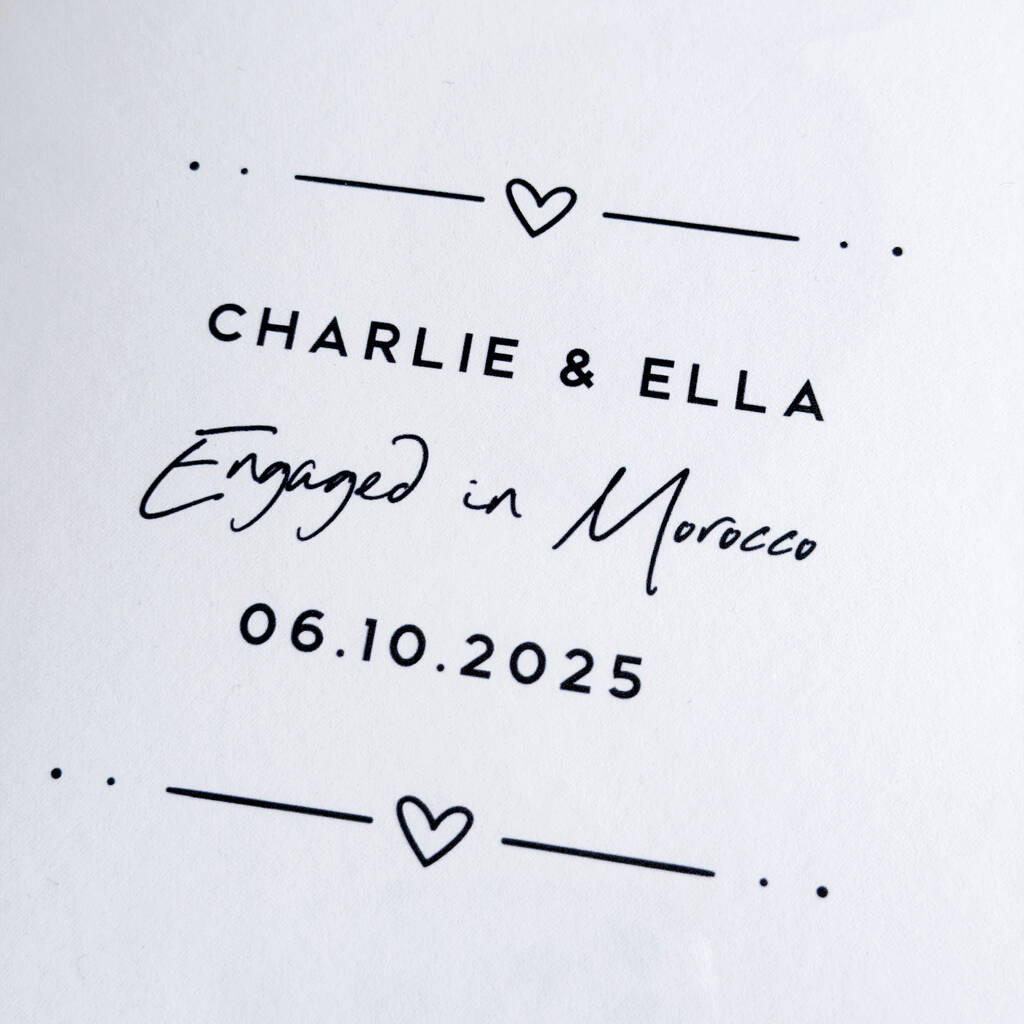 CHARLIE & ELLA
Engaged in Morocco
06.10.2025